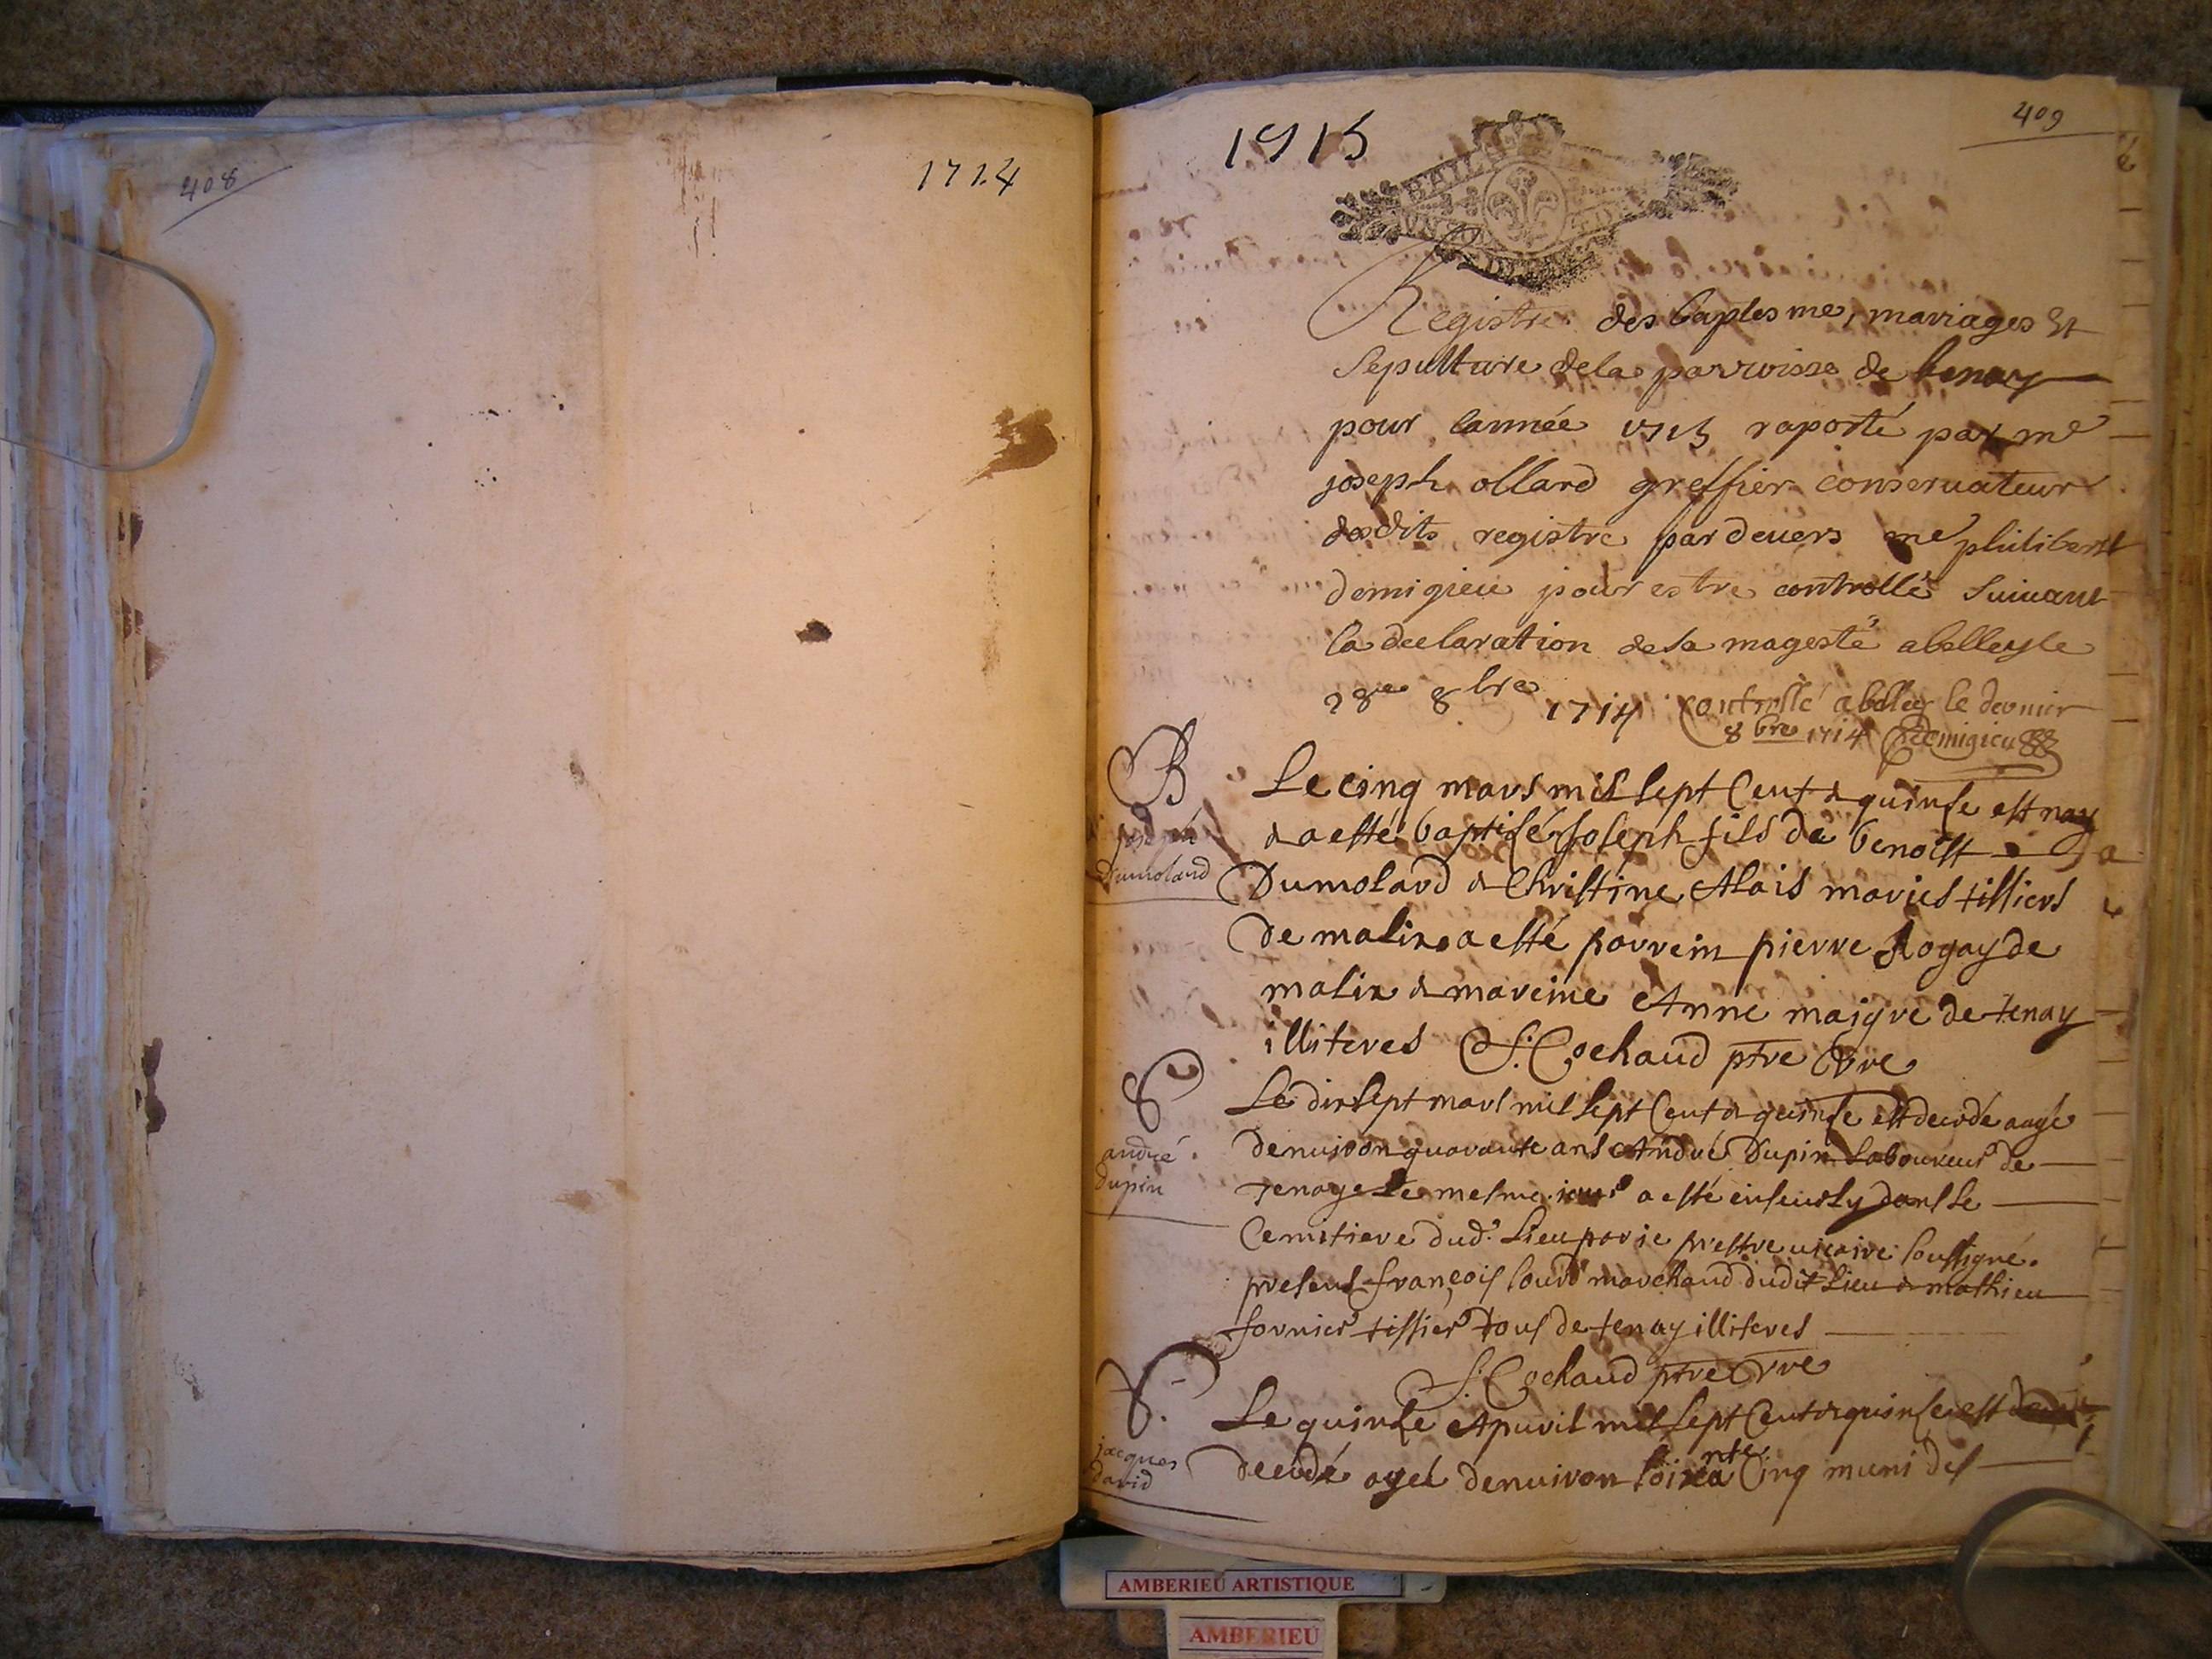 408
1714
409
1715
Registre des baptesme, mariages Et
Sepulture de la parroisse de tenay
pour lannée 1715 raporté par me
joseph ollard greffier conservateur
desdits registre pardevers me philibert
demigieu pour estre controllé Suivant
la declaration de sa magesté abelleyle
28e 8bre 1714 Controllé a belley le dernier
8bre 1714 Demigieu
B
joseph
Dumolard
Le cinq mars mil sept Cent & quinse est nay
& a esté baptisé Joseph fils de benoist
Dumolard & Christine Alais mariés tissiers
de malix a esté parrein pierre Rogay de
malix & mareine Anne maigre de tenay
illiteres S. Cochaud ptre Vre
andré
dupin
Le dix sept mars mil sept Cent & quinse est decedé aagé
denuiron quarante ans André Dupin Laboureur de
Tenay Le mesme iour a esté enseuely dans Le
Cemitiere dud. Lieu par ie prestre uicaire soussigné.
presens françois lourd marchand dudit Lieu & mathieu
fornier tissier tous de tenay illiteres
S. Cochaud ptre Vre
jacques
david
Le quinse Apuril mil sept Cent & quinse est
decedé agé denuiron soixante Cinq muni des
AMBERIEU ARTISTIQUE
AMBERIEU